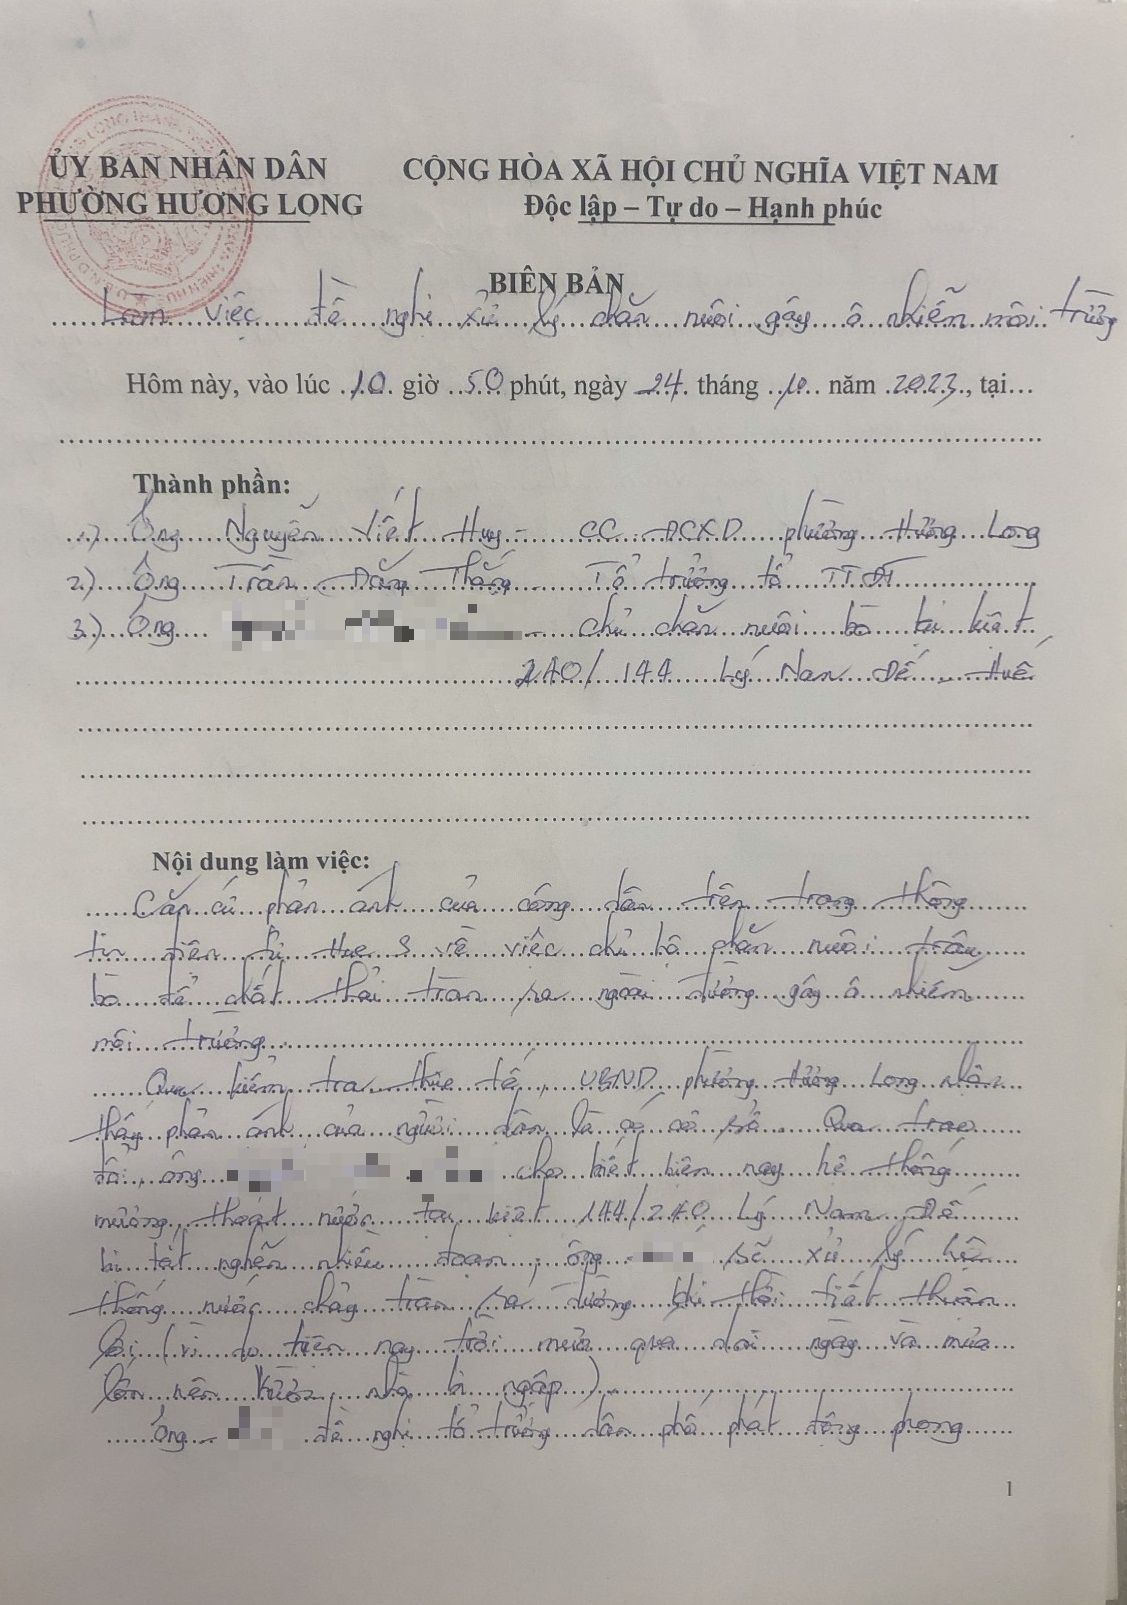 ỦY BAN NHÂN DÂN
PHƯỜNG HƯƠNG LONG
CỘNG HÒA XÃ HỘI CHỦ NGHĨA VIỆT NAM
Độc lập – Tự do – Hạnh phúc
BIÊN BẢN
Làm việc đề nghị xử lý chăn nuôi gây ô nhiễm môi trường
Hôm này, vào lúc 10 giờ 50 phút, ngày 24 tháng 10 năm 2023, tại…
Thành phần:
1) Ông Nguyễn Viết Huy - CC ĐCXD phường Hương Long
2) Ông Trần Đăng Thắng Tổ trưởng tổ
3) Ông - chủ chăn nuôi bò tại kiệt
240/144 Lý Nam Đế - Huế
Nội dung làm việc:
Căn cứ phản ánh của công dân trên trang thông
tin điện tử Hue S về việc chủ hộ chăn nuôi trâu
bò để chất thải tràn ra ngoài đường gây ô nhiễm
môi trường.
Qua kiểm tra thực tế, UBND phường Hương Long nhận
thấy phản ánh của người dân là có cơ sở. Qua trao
đổi, ông cho biết hiện nay hệ thống
mương thoát nước tại kiệt 144/240 Lý Nam Đế
bị tắt nghẽn nhiều đoạn, ông sẽ xử lý hệ
thống nước chảy tràn ra đường khi thời tiết thuận
lợi (vì do hiện nay trời mưa qua dài ngày và mưa
lớn nên vườn, nhà bị ngập).
Ông đề nghị tổ trưởng dân phố phát động phong
1